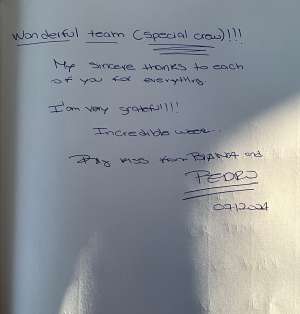 Wonderful team (special crew)!!!
My sincere thanks to each
of you for everything
I'am very grateful!!!
Incredible week...
Big kiss from and
PEDRO
07/2024